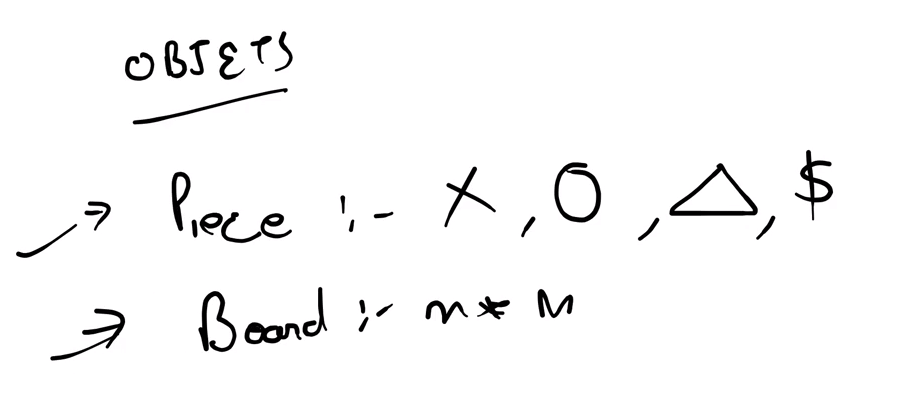 OBJETS
→ Piece :- X, O, △, $
→ Board :- n * n